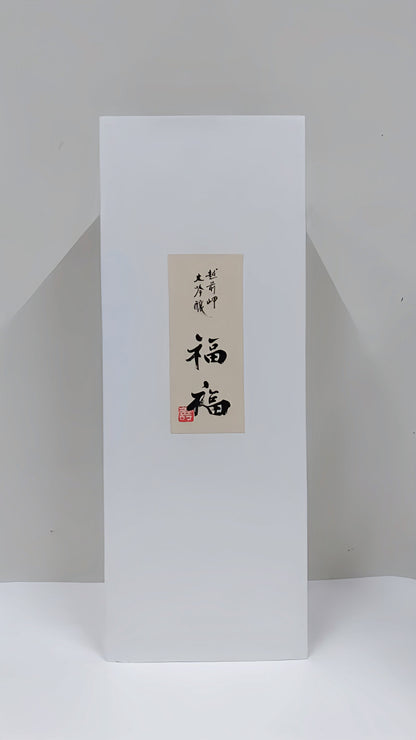 越前岬
大吟醸
福
福